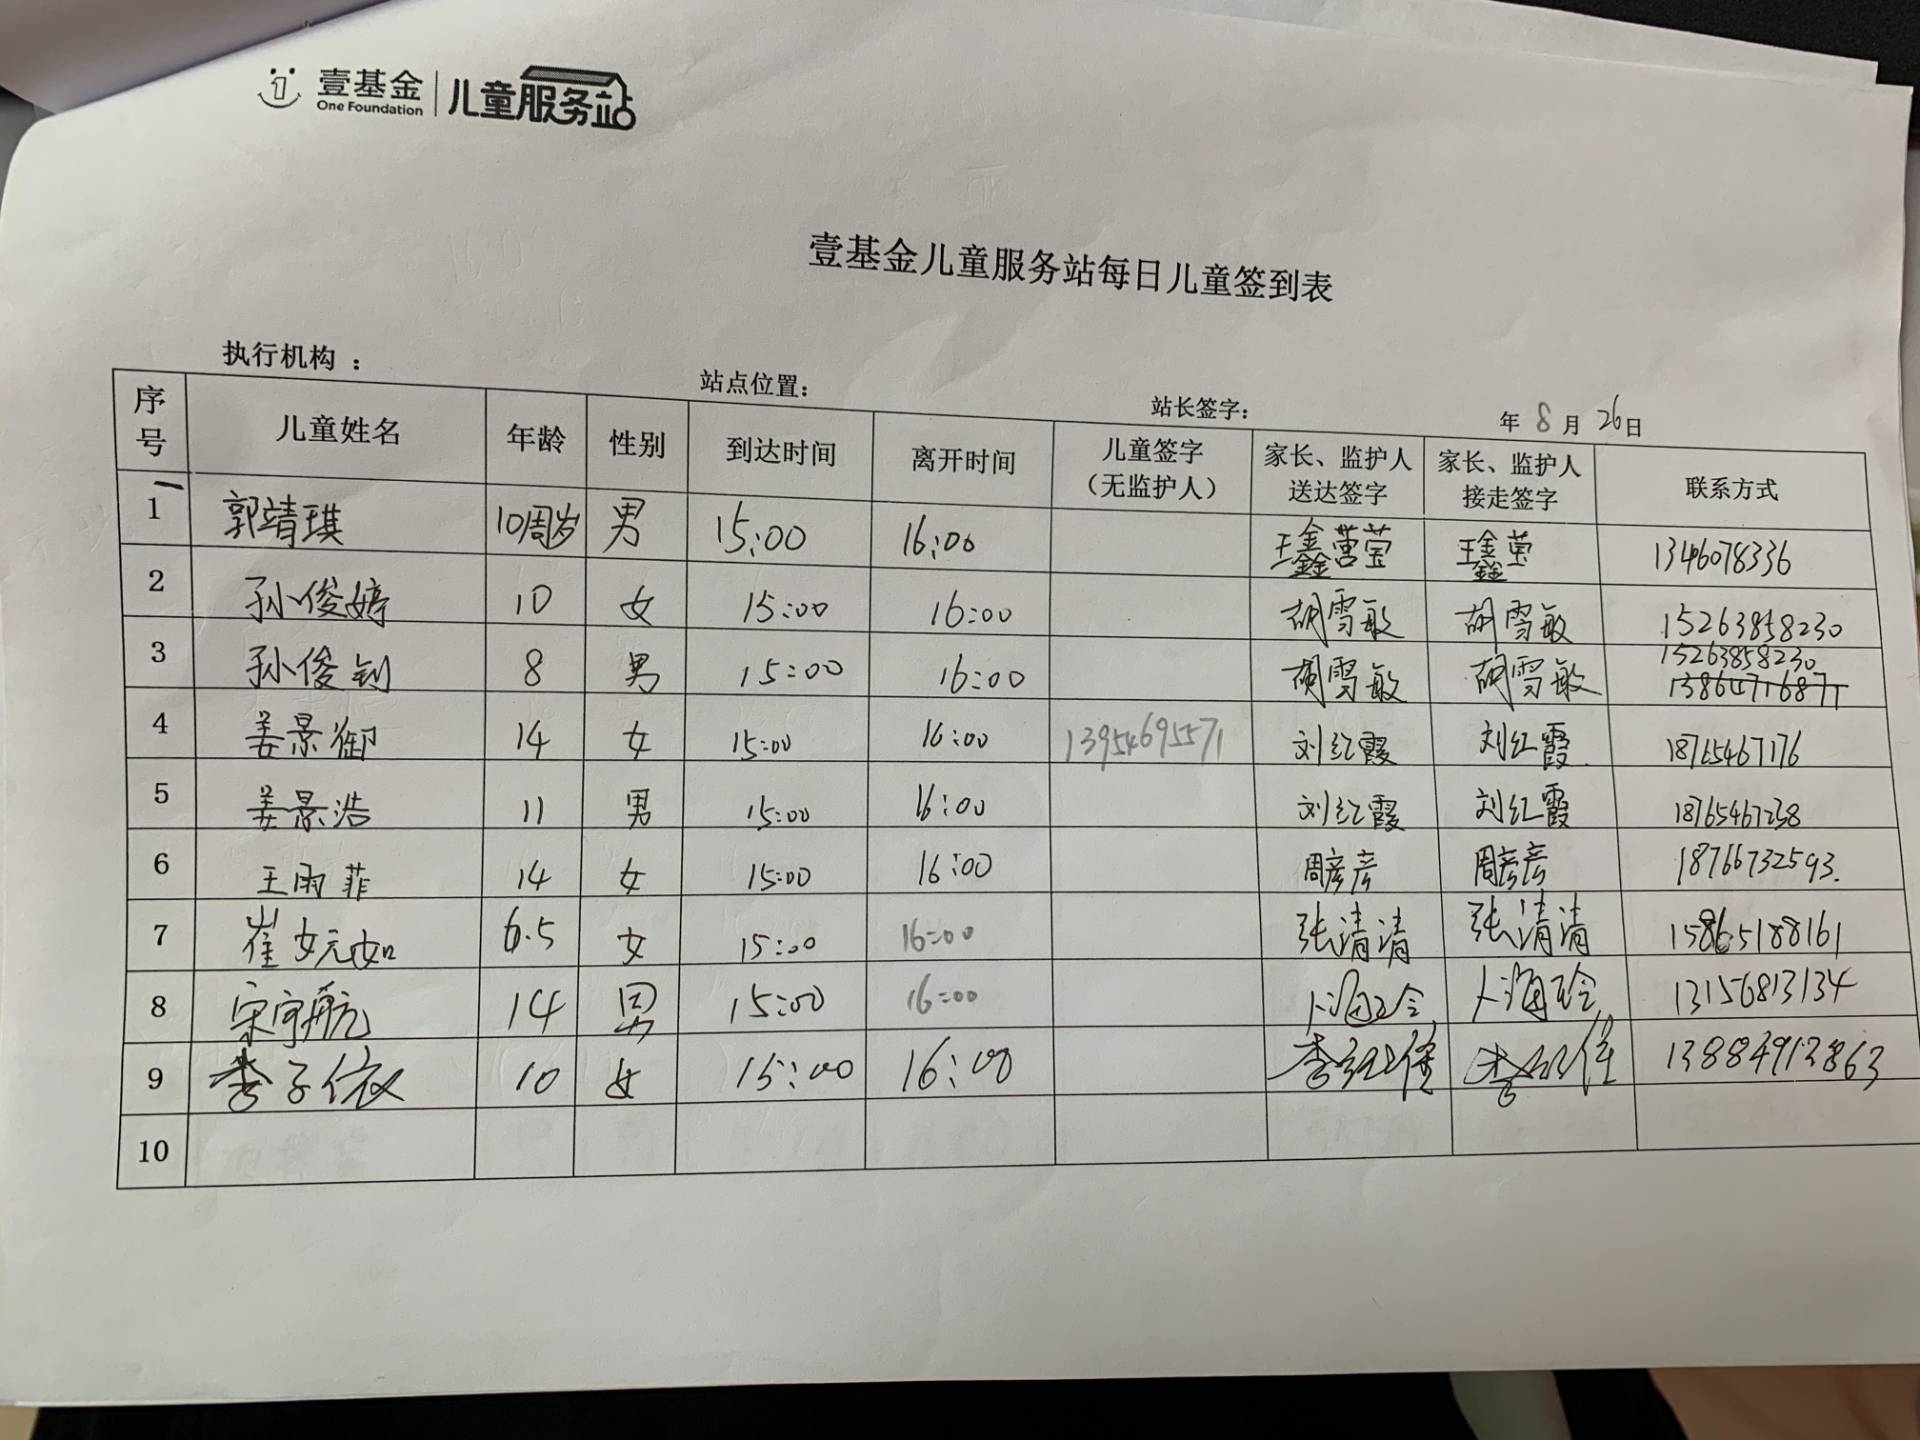 壹基金 儿童服务站
One Foundation
壹基金儿童服务站每日儿童签到表
执行机构 : 站点位置: 站长签字: 年 8 月 26 日
序号 儿童姓名 年龄 性别 到达时间 离开时间 儿童签字（无监护人） 家长、监护人送达签字 家长、监护人接走签字 联系方式
1 郭靖琪 10周岁 男 15:00 16:00 王鑫莹 1346078336
2 孙俊婷 10 女 15:00 16:00 胡雪敏 胡雪敏 15263858230
3 孙俊钊 8 男 15:00 16:00 胡雪敏 胡雪敏 15263858230 13864716871
4 姜景御 14 女 15:00 16:00 13954695571 刘红霞 刘红霞 18765467176
5 姜景浩 11 男 15:00 16:00 刘红霞 刘红霞 18765467238
6 王雨菲 14 女 15:00 16:00 周彦彦 周彦彦 18766732593.
7 崔妧如 6.5 女 15:00 16:00 张清清 张清清 15865188161
8 宋宇航 14 男 15:00 16:00 卜海玲 卜海玲 13156813134
9 李子依 10 女 15:00 16:00 13884913863
10